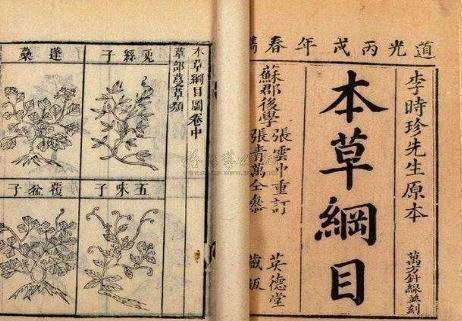 道光丙戌年春鐫
李時珍先生原本
萬方針線並刻
本草綱目
蘇郡後學
張雲中重訂
張青萬全參
英德堂
藏板
本草綱目圖卷中
草部蔓草類
菟絲子
蓬蘽
五味子
覆盆子